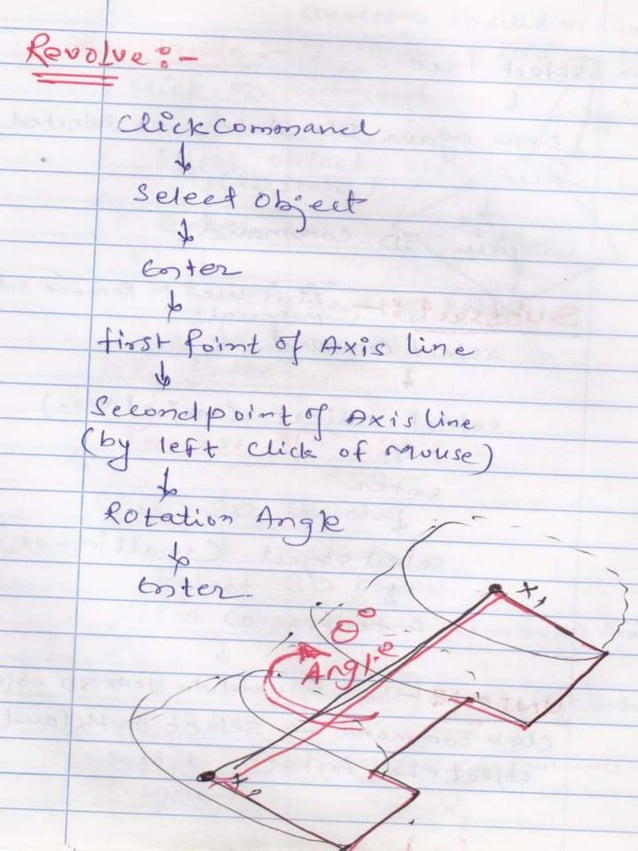 Revolve :-
Click Command
↓
Select Object
↓
Enter
↓
first Point of Axis line
↓
Second point of Axis line
(by left click of Mouse)
↓
Rotation Angle
↓
Enter.
θ°
Angle
X1
X0